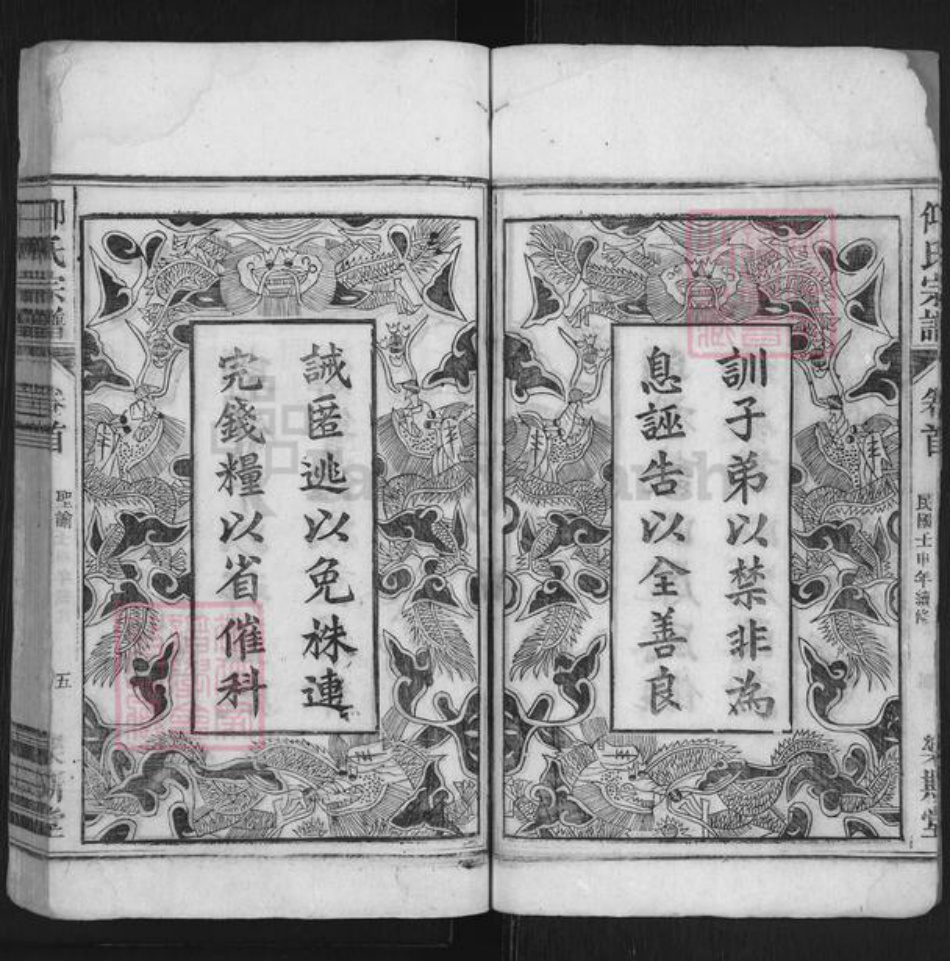 仰氏宗譜
卷首
民國壬申年續修
訓子弟以禁非為
息誣告以全善良
誡匿逃以免株連
完錢糧以省催科
仰氏宗譜
卷首
聖諭
五